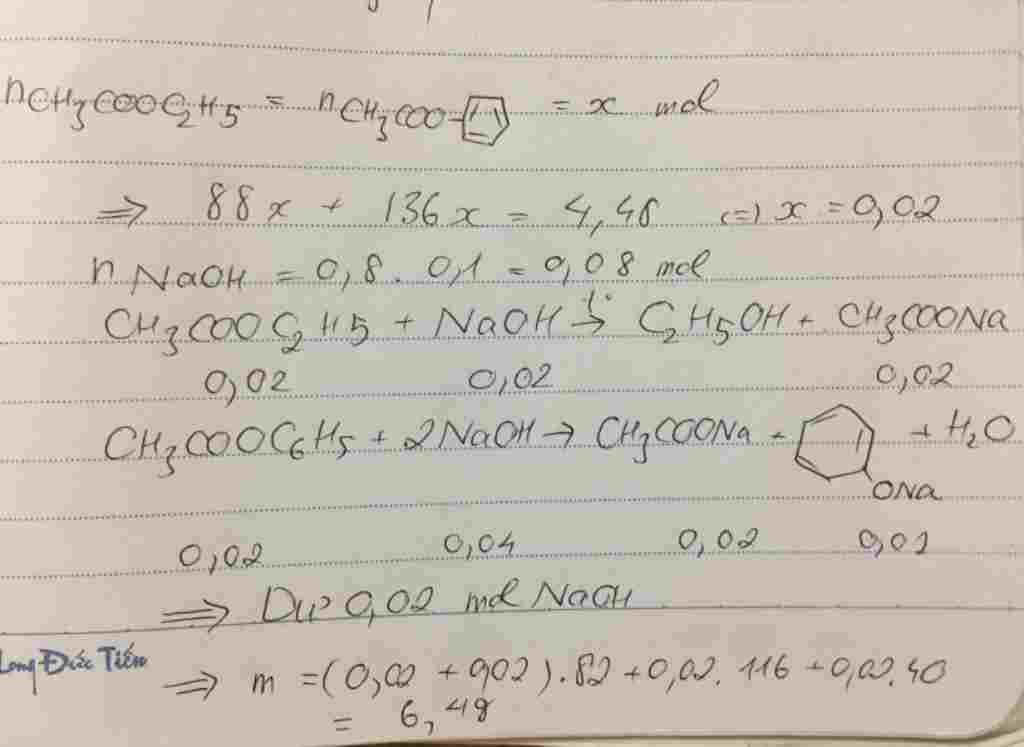 nCH3COOC2H5 = nCH3COO- = x mol
=> 88x + 136x = 4,48 (=) x = 0,02
n NaOH = 0,8 . 0,1 = 0,08 mol
CH3COOC2H5 + NaOH t°→ C2H5OH + CH3COONa
0,02 0,02 0,02
CH3COOC6H5 + 2NaOH → CH3COONa + ONa + H2O
0,02 0,04 0,02 0,02
=> Dư 0,02 mol NaOH
Long Đức Tiến
=> m = (0,02 + 0,02).82 + 0,02.116 + 0,02.40
= 6,4g